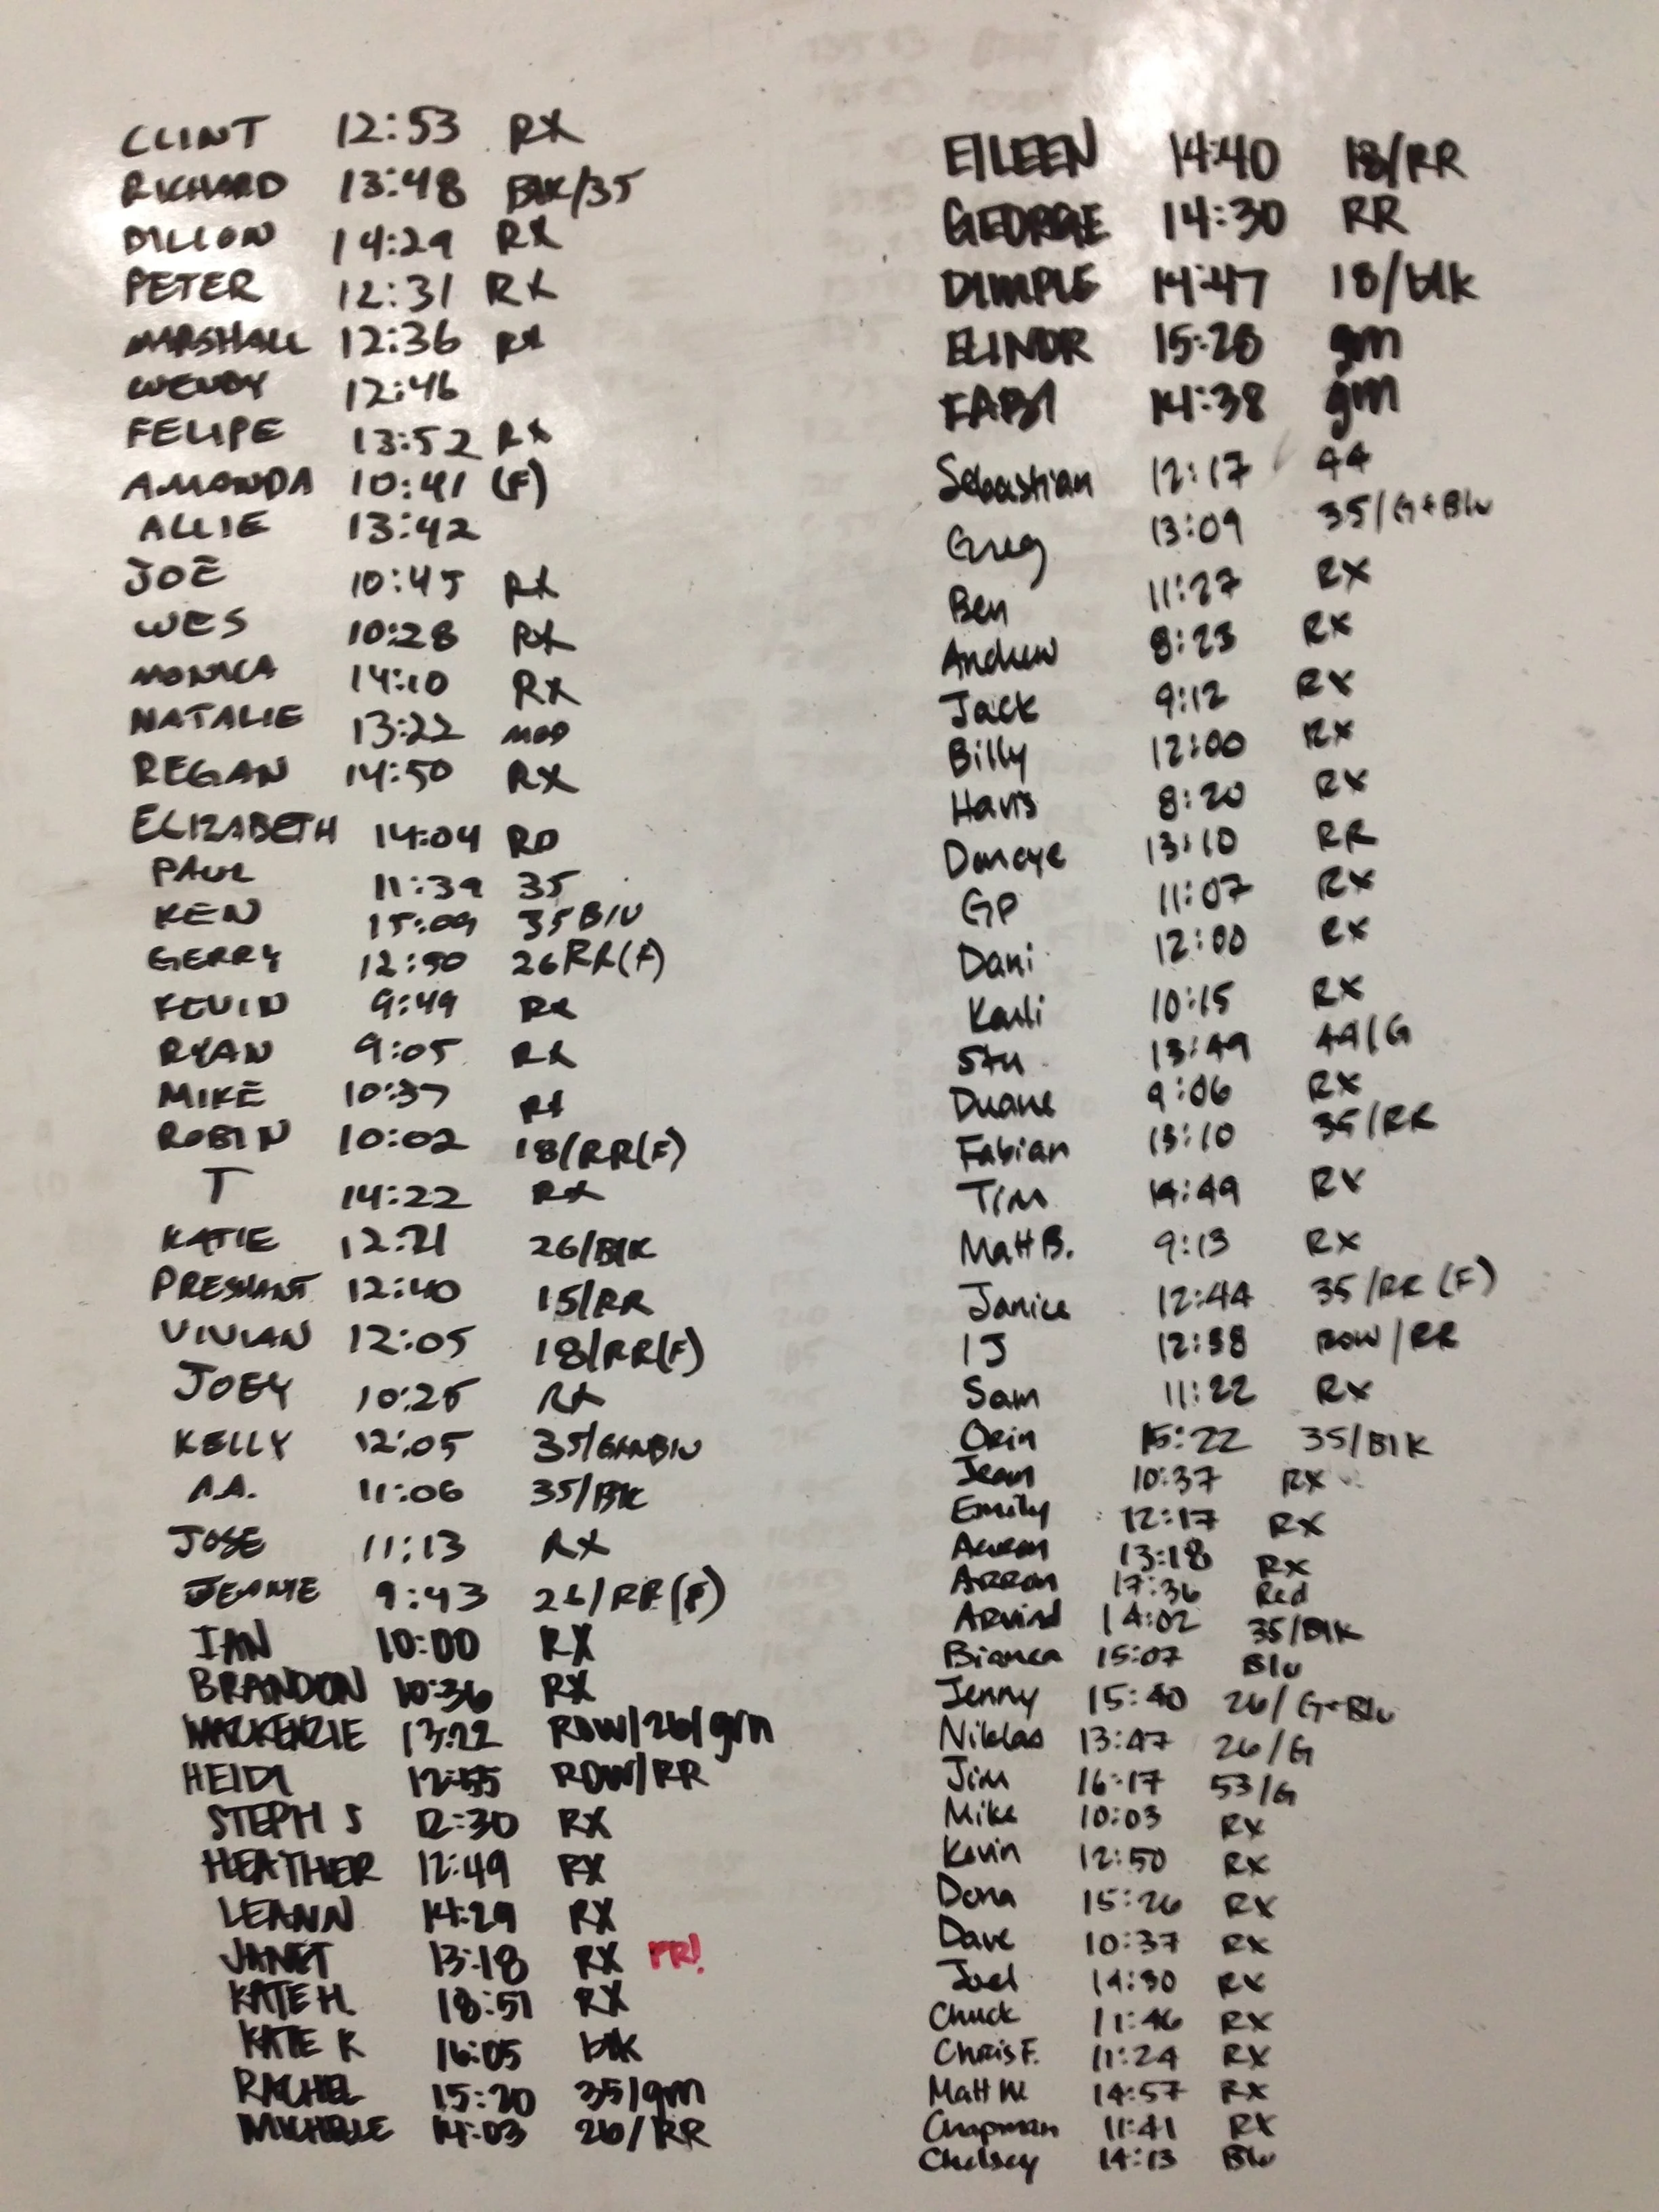 CLINT 12:53 RX
RICHARD 13:48 BLK/35
DILLON 14:29 RX
PETER 12:31 RX
MARSHALL 12:36 RX
WENDY 12:46
FELIPE 13:52 RX
AMANDA 10:41 (F)
ALLIE 13:42
JOE 10:45 RX
WES 10:28 RX
MONICA 14:10 RX
NATALIE 13:22 MOD
REGAN 14:50 RX
ELIZABETH 14:04 RD
PAUL 11:39 35
KEN 15:09 35 Blu
GERRY 12:50 26 RR(F)
KEVIN 9:49 RX
RYAN 9:05 RX
MIKE 10:37 RX
ROBIN 10:02 18/RR(F)
T 14:22 RX
KATIE 12:21 26/BlK
12:40 15/RR
VIVIAN 12:05 18/RR(F)
JOEY 10:25 RX
KELLY 12:05 35/GRNBlU
A.A. 11:06 35/BlK
JOSE 11:13 RX
JEANIE 9:43 26/RR(F)
IAN 10:00 RX
BRANDON 10:36 RX
MACKENZIE 13:22 ROW/26/grn
HEIDI 12:55 ROW/RR
STEPH S 12:30 RX
HEATHER 12:49 RX
LEANN 14:29 RX
JANET 13:18 RX PR!
KATE H. 18:51 RX
KATE K 16:05 blk
RACHEL 15:20 35/grn
MICHELE 14:03 26/RR
EILEEN 14:40 18/RR
GEORGE 14:30 RR
DIMPLE 14:47 18/blk
ELINOR 15:28 grn
FABI 14:38 grn
Sebastian 12:17 44
Greg 13:09 35/G+Blu
Ben 11:27 RX
Andrew 8:23 RX
Jack 9:12 RX
Billy 12:00 RX
Havis 8:20 RX
Doncye 13:10 RR
GP 11:07 RX
Dani 12:00 RX
Karli 10:15 RX
Stu 13:49 44/G
Duane 9:06 RX
Fabian 13:10 35/RR
Tim 14:49 RX
Matt B. 9:13 RX
Janice 12:44 35/RR (F)
IJ 12:38 ROW/RR
Sam 11:22 RX
Orin 15:22 35/BlK
Jean 10:37 RX
Emily 12:17 RX
Aaron 13:18 RX
Arron 17:36 Red
Arvind 14:02 35/BlK
Bianca 15:07 Blu
Jenny 15:40 26/G+Blu
Niklas 13:47 26/G
Jim 16:17 53/G
Mike 10:03 RX
Kevin 12:50 RX
Dona 15:26 RX
Dave 10:37 RX
Joel 14:30 RX
Chuck 11:46 RX
Chris F. 11:24 RX
Matt W. 14:57 RX
Chapman 11:41 RX
Chelsey 14:13 Blu